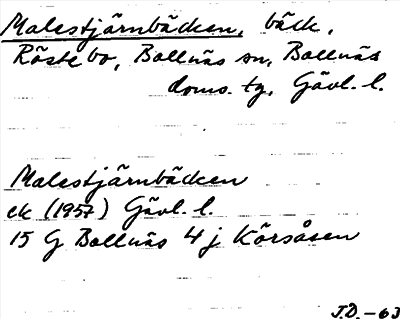 Malestjärnbäcken, bäck,
Röstebo, Bollnäs sn, Bollnäs
doms. tg, Gävl. l.
Malestjärnbäcken
ek (1957) Gävl. l.
15 G Bollnäs 4 j Körsåsen
J.D. -63